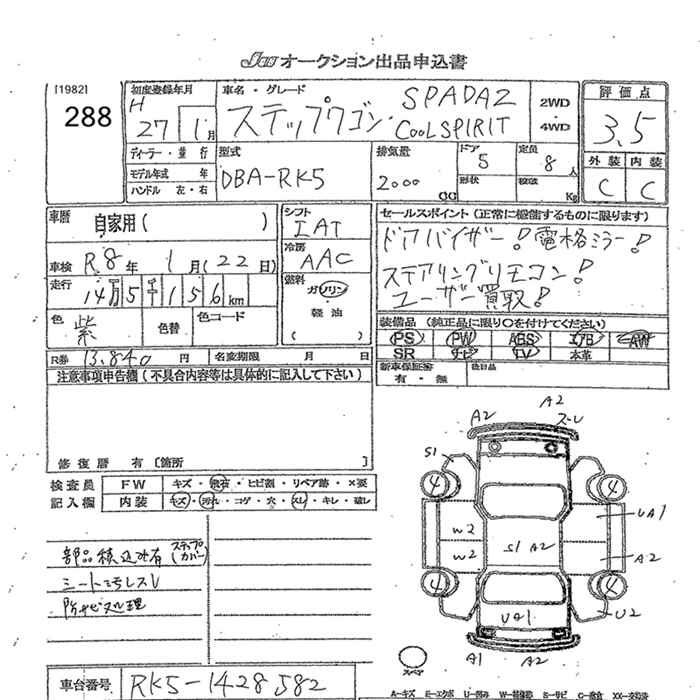 JAA オークション出品申込書
[1982]
288
初度登録年月
H
27 1月
車名・グレード
ステップワゴン SPADAZ
COOLSPIRIT
2WD
・
4WD
評価点
3.5
外装 内装
C C
ディーラー・並行
モデル年式 年
ハンドル 左・右
型式
DBA-RK5
排気量
2000
CC
ドア
5
形状
定員
8人
積載
Kg
車歴
自家用( )
車検 R8年 1月(22日)
走行
14万5千156km
色
紫
色替
色コード
R券 13,840円
名変期限 月 日
シフト
IAT
冷房
AAC
燃料
ガソリン
・
軽油
( )
セールスポイント(正常に機能するものに限ります)
ドアバイザー! 電格ミラー!
ステアリングリモコン!
ユーザー買取!
装備品(純正品に限り○を付けてください)
PS PW ABS エアB AW
SR ナビ TV 本革
新車保証書
有・無
後日品
注意事項申告欄(不具合内容等は具体的に記入して下さい)
修復歴 有〔箇所 〕
検査員
記入欄
FW キズ・飛石・ヒビ割・リペア跡・×要
内装 キズ・汚れ・コゲ・穴・スレ・キレ・破レ
部品積込み有(ステップカバー)
シート汚レスレ
防サビ処理
A2
A2
スレ
S1
4
4
W2
W2
S1 A2
UA1
A2
4
4
UA1
U2
A1
A2
スペア
車台番号 RK5-1428582
A-キズ E-エクボ U-凹み W-補修跡 S-サビ C-腐食 XX-交換済